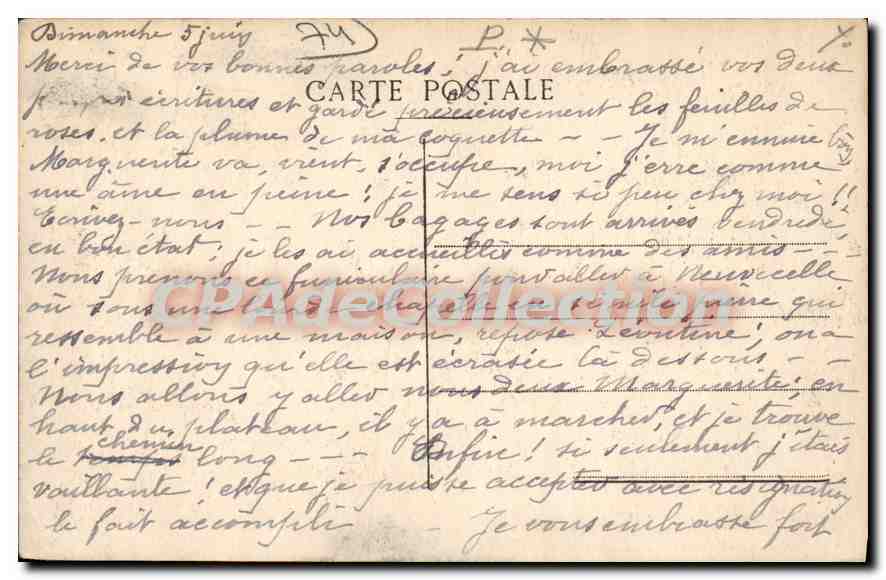 Dimanche 5 juin 74 P. *
Merci de vos bonnes paroles ; j'ai embrassé vos deux
CARTE POSTALE
écritures et gardé précieusement les feuilles de
roses et la plume de ma coquette - - Je m'ennuie bien
Marguerite va, vient, s'occupe, moi j'erre comme
une âme en peine ; je me sens si peu chez moi !!
Ecrivez-nous - - Nos bagages sont arrivés vendredi,
en bon état ; je les ai accueillis comme des amis - -
Nous prenons ce funiculaire pour aller à Neuvecelle
où sous une en granite, mine qui
ressemble à une maison, repose Léontine ; on a
l'impression qu'elle est écrasée là dessous - -
Nous allons y aller nous deux Marguerite ; en
haut du plateau, il y a à marcher, et je trouve
le chemin long - - - Enfin ! si seulement j'étais
vaillante ! et que je puisse accepter avec résignation
le fait accompli Je vous embrasse fort
CPAdeCollection